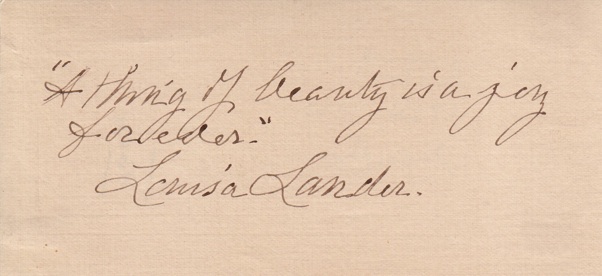 "A thing of beauty is a joy
forever."
Louisa Lander.